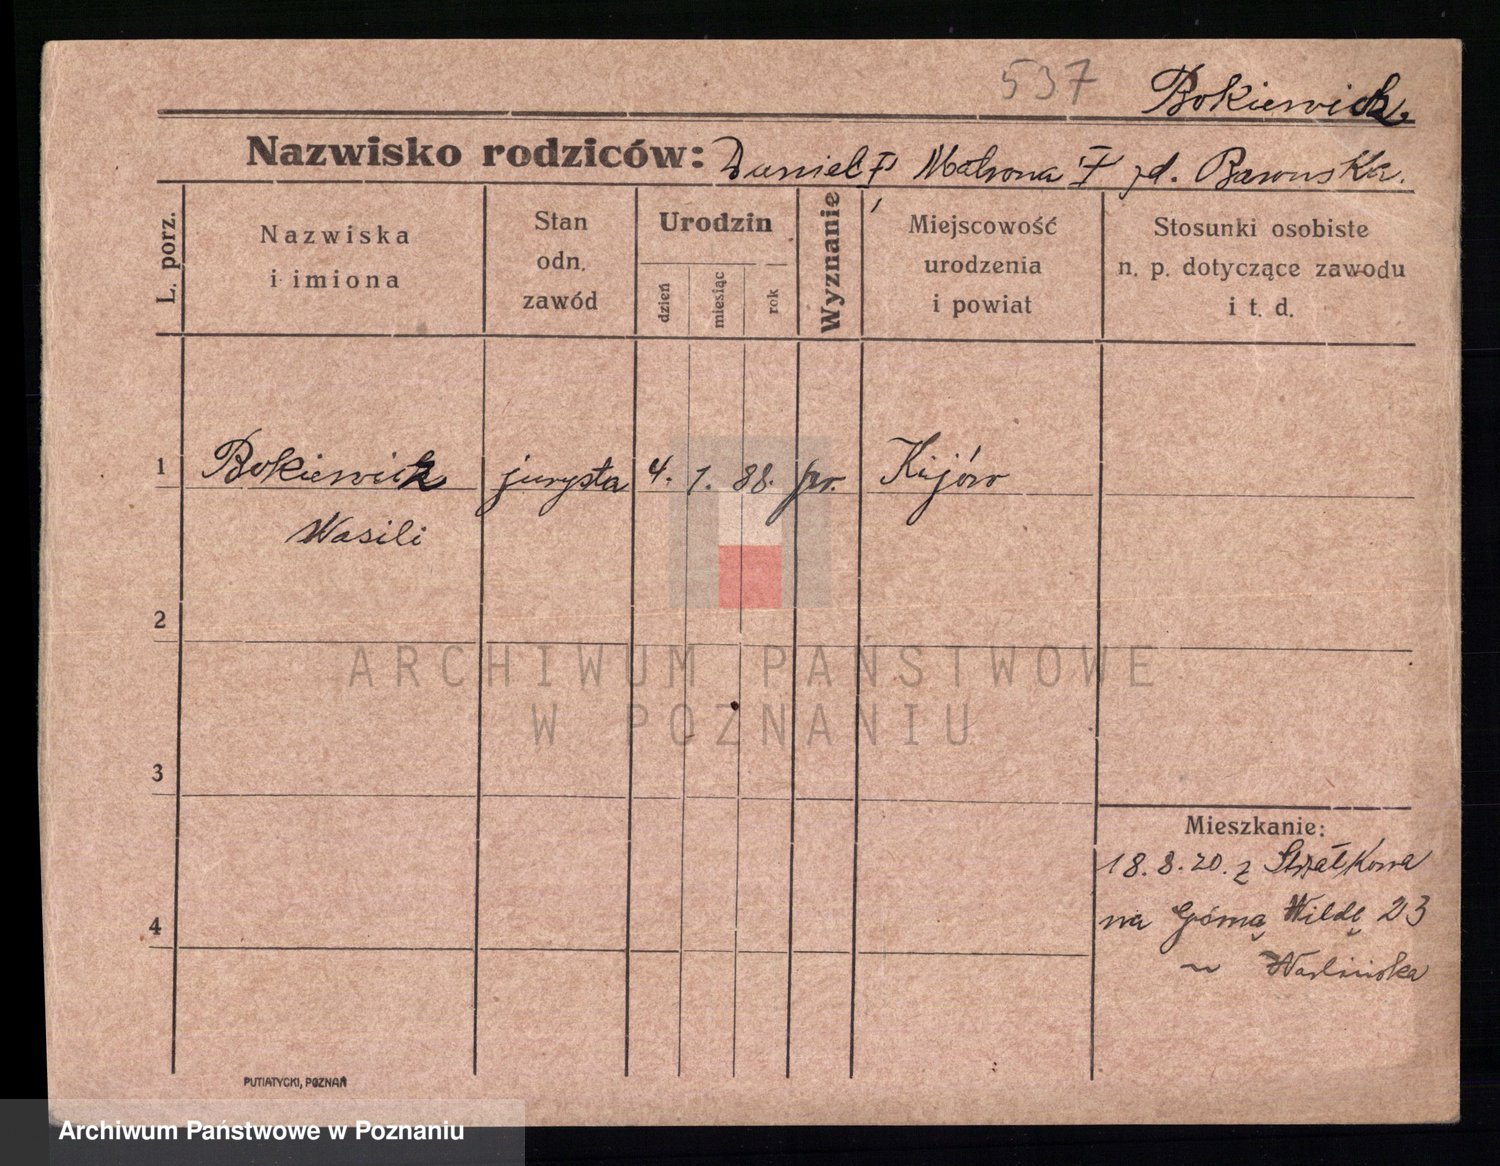 537 Bokiewicz.
Nazwisko rodziców: Daniel † Matrona † zd. Barouska.
L. porz.
Nazwiska
i imiona
Stan
odn.
zawód
Urodzin
dzień
miesiąc
rok
Wyznanie
Miejscowość
urodzenia
i powiat
Stosunki osobiste
n. p. dotyczące zawodu
i t. d.
1 Bokiewicz jurysta 4. 1. 88. pr. Kijów
Wasili
2
3
4
Mieszkanie:
18.8.20. z Strzałkowa
na Górną Wildę 23
PUTIATYCKI, POZNAŃ
ARCHIWUM PAŃSTWOWE
W POZNANIU
Archiwum Państwowe w Poznaniu